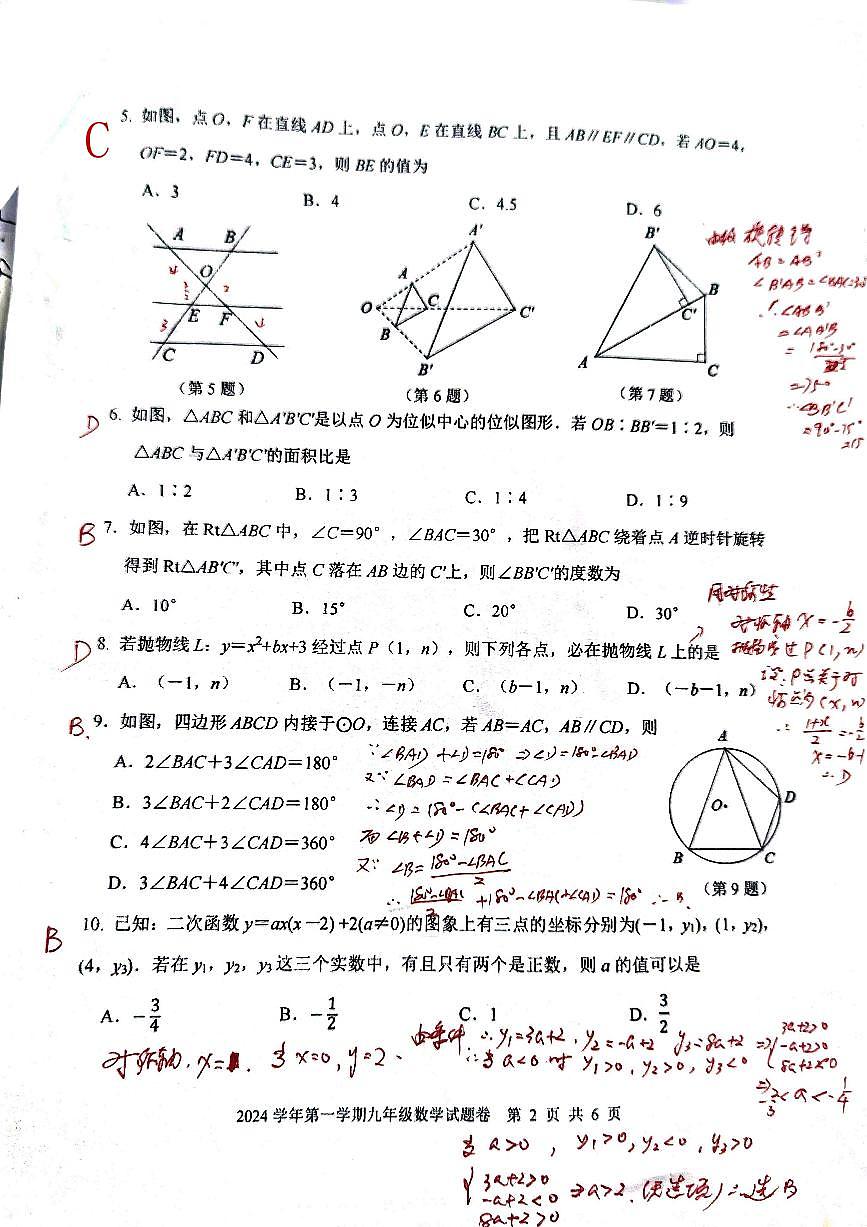 C 5. 如图，点 O，F 在直线 AD 上，点 O，E 在直线 BC 上，且 AB∥EF∥CD，若 AO=4，
OF=2，FD=4，CE=3，则 BE 的值为
A．3 B．4 C．4.5 D．6
A B O E F C D
4 2 3 4
3/2
A' A O C C' B B'
B' B C' A C
由旋转得
AB=AB'
∠B'AB=∠BAC=30°
∴∠ABB'
=∠AB'B
=75°
∴∠BB'C'
=90°-75°
=15
（第 5 题） （第 6 题） （第 7 题）
D 6. 如图，△ABC 和△A'B'C'是以点 O 为位似中心的位似图形．若 OB∶BB'=1∶2，则
△ABC 与△A'B'C'的面积比是
A．1∶2 B．1∶3 C．1∶4 D．1∶9
B 7. 如图，在 Rt△ABC 中，∠C=90°，∠BAC=30°，把 Rt△ABC 绕着点 A 逆时针旋转
得到 Rt△AB'C'，其中点 C 落在 AB 边的 C'上，则∠BB'C'的度数为
A．10° B．15° C．20° D．30°
用对称性
对称轴 x=-b/2
D 8. 若抛物线 L：y=x²+bx+3 经过点 P（1，n），则下列各点，必在抛物线 L 上的是
抛物线过 P(1,n)
A．（−1，n） B．（−1，−n） C．（b−1，n） D．（−b−1，n）
设：P点关于对
称点为(x,n)
∴ (1+x)/2=-b/2
x=-b-1
∴D
B. 9. 如图，四边形 ABCD 内接于⊙O，连接 AC，若 AB=AC，AB∥CD，则
A．2∠BAC+3∠CAD=180°
B．3∠BAC+2∠CAD=180°
C．4∠BAC+3∠CAD=360°
D．3∠BAC+4∠CAD=360°
∵∠BAD+∠D=180° ⇒∠D=180°-∠BAD
又∵∠BAD=∠BAC+∠CAD
∴∠D=180°-(∠BAC+∠CAD)
而∠B+∠D=180°
又∵ ∠B=(180°-∠BAC)/2
∴ (180°-∠BAC)/2+180°-∠BAC+∠CAD=180° ∴B.
A O D B C
（第 9 题）
B 10. 已知：二次函数 y=ax(x−2)+2(a≠0)的图象上有三点的坐标分别为(−1, y₁)，(1, y₂)，
(4, y₃)．若在 y₁，y₂，y₃ 这三个实数中，有且只有两个是正数，则 a 的值可以是
A．−3/4 B．−1/2 C．1 D．3/2
对称轴．x=1．当 x=0, y=2、
由条件 ∴y₁=3a+2, y₂=-a+2 y₃=8a+2
∴当 a<0 时 y₁>0, y₂>0, y₃<0
⇒{3a+2>0
-a+2>0
8a+2<0
⇒ -2/3<a<-1/4
2024 学年第一学期九年级数学试题卷 第 2 页 共 6 页
当 a>0 , y₁>0, y₂<0, y₃>0
{3a+2>0
-a+2<0
8a+2>0
⇒a>2. (无选项) ∴选 B